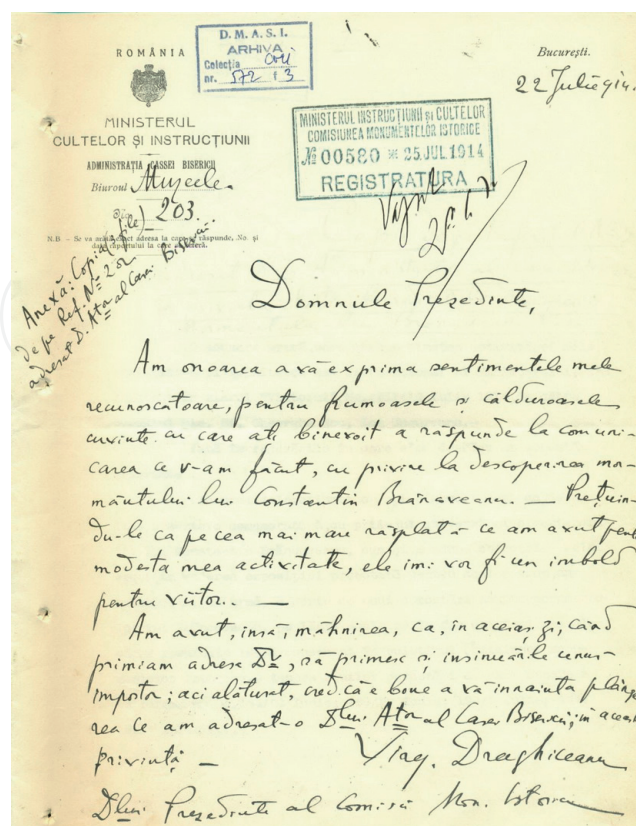 ROMÂNIA
MINISTERUL
CULTELOR ȘI INSTRUCȚIUNII
ADMINISTRAȚIA CASSEI BISERICII
Biuroul Muzeele
203.
N.B. – Se va arăta exact adresa la care se răspunde, No. și
data raportului la care se referă.
D. M. A. S. I.
ARHIVA
Colecția
nr. 572 13
București.
22 Iulie 914.
MINISTERUL INSTRUCȚIUNII ȘI CULTELOR
COMISIUNEA MONUMENTELOR ISTORICE
№ 00580 * 25.JUL.1914
REGISTRATURA
Anexă: Copia (file)
de pe Ref. № 202
adresat D. Ator al Casei Bisericii.
Domnule Președinte,
Am onoarea a vă exprima sentimentele mele
recunoscătoare, pentru frumoasele și călduroasele
cuvinte cu care ați binevoit a răspunde la comuni-
carea ce v-am făcut, cu privire la descoperirea mor-
mântului lui Constantin Brâncoveanu. — Prețuin-
du-le ca pe cea mai mare răsplată ce am avut pentru
modesta mea activitate, ele îmi vor fi un imbold
pentru viitor. —
Am avut, însă, mâhnirea, ca, în aceiaș zi, când
primiam adresa Dv, să primesc și insinuările unui
impostor; aci alăturat, cred că e bine a vă înnainta plânge
rea ce am adresat-o Dlui Ator al Casei Bisericii, în această
privință —
Virg. Drăghiceanu
Dlui Președinte al Comisii Mon. Istorice